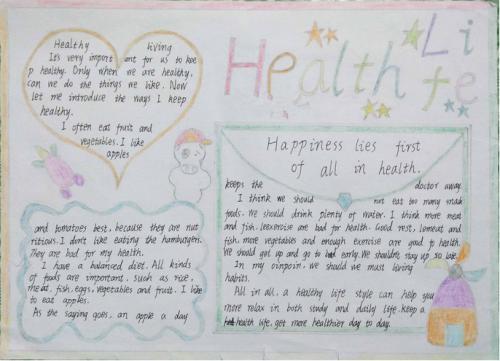 Health Life
Healthy living
It's very import ant for us to kee
p healthy. Only when we are healthy,
can we do the things we like. Now
let me introduce the ways I keep
healthy.
I often eat fruit and
vegetables. I like
apples
and tomatoes best, because they are nut
ritious. I don't like eating the hamburgers.
They are bad for my health.
I have a balanced diet. All kinds
of foods are important, such as rice,
meat, fish, eggs, vegetables and fruit. I like
to eat apples.
As the saying goes, an apple a day
Happiness lies first
of all in health.
keeps the doctor away.
I think we should not eat too many snack
foods. We should drink plenty of water. I think more meat
and fish, lessexercise are bad for health. Good rest, lemeat and
fish, more vegetables and enough exercise are good to health.
We should get up and go to bed early. We shouldn't stay up so late.
In my oinpoin, we should we must living
habits.
All in all, a healthy life style can help you
more relax in both study and daily life. keep a
health life, get more healthier day to day.